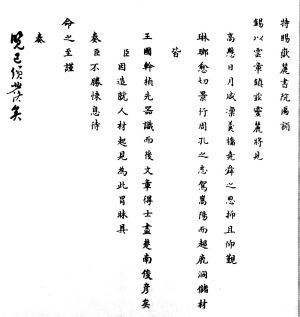 特賜嶽麓書院滿額
錫以雲章鎮茲靈麓將見
高懸日月咸凜美牆堯舜之思抑且仰觀
琳瑯愈切景行周孔之志駕嵩陽而超鹿洞儲材
皆
王國幹楨先器識而後文章得士盡楚南俊彥矣
臣因造就人材起見為此冒昧具
奏臣不勝悚息待
命之至謹
奏